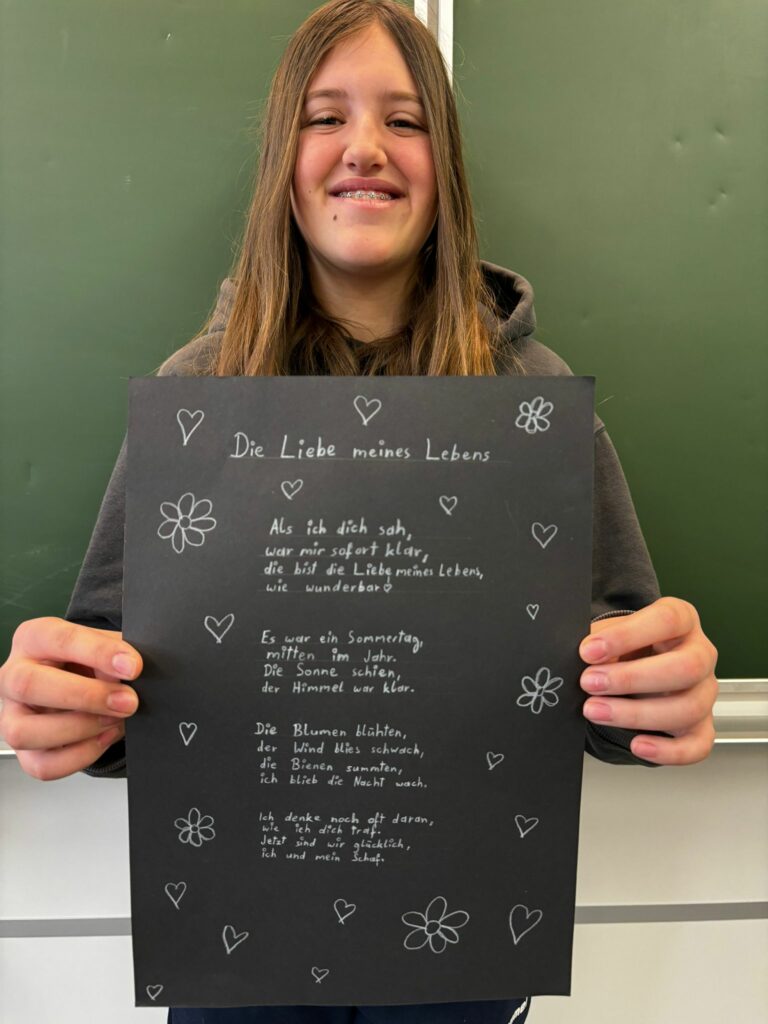 Die Liebe meines Lebens
Als ich dich sah,
war mir sofort klar,
die bist die Liebe meines Lebens,
wie wunderbar
Es war ein Sommertag,
mitten im Jahr.
Die Sonne schien,
der Himmel war klar.
Die Blumen blühten,
der Wind blies schwach,
die Bienen summten,
ich blieb die Nacht wach.
Ich denke noch oft daran,
wie ich dich traf.
Jetzt sind wir glücklich,
ich und mein Schaf.